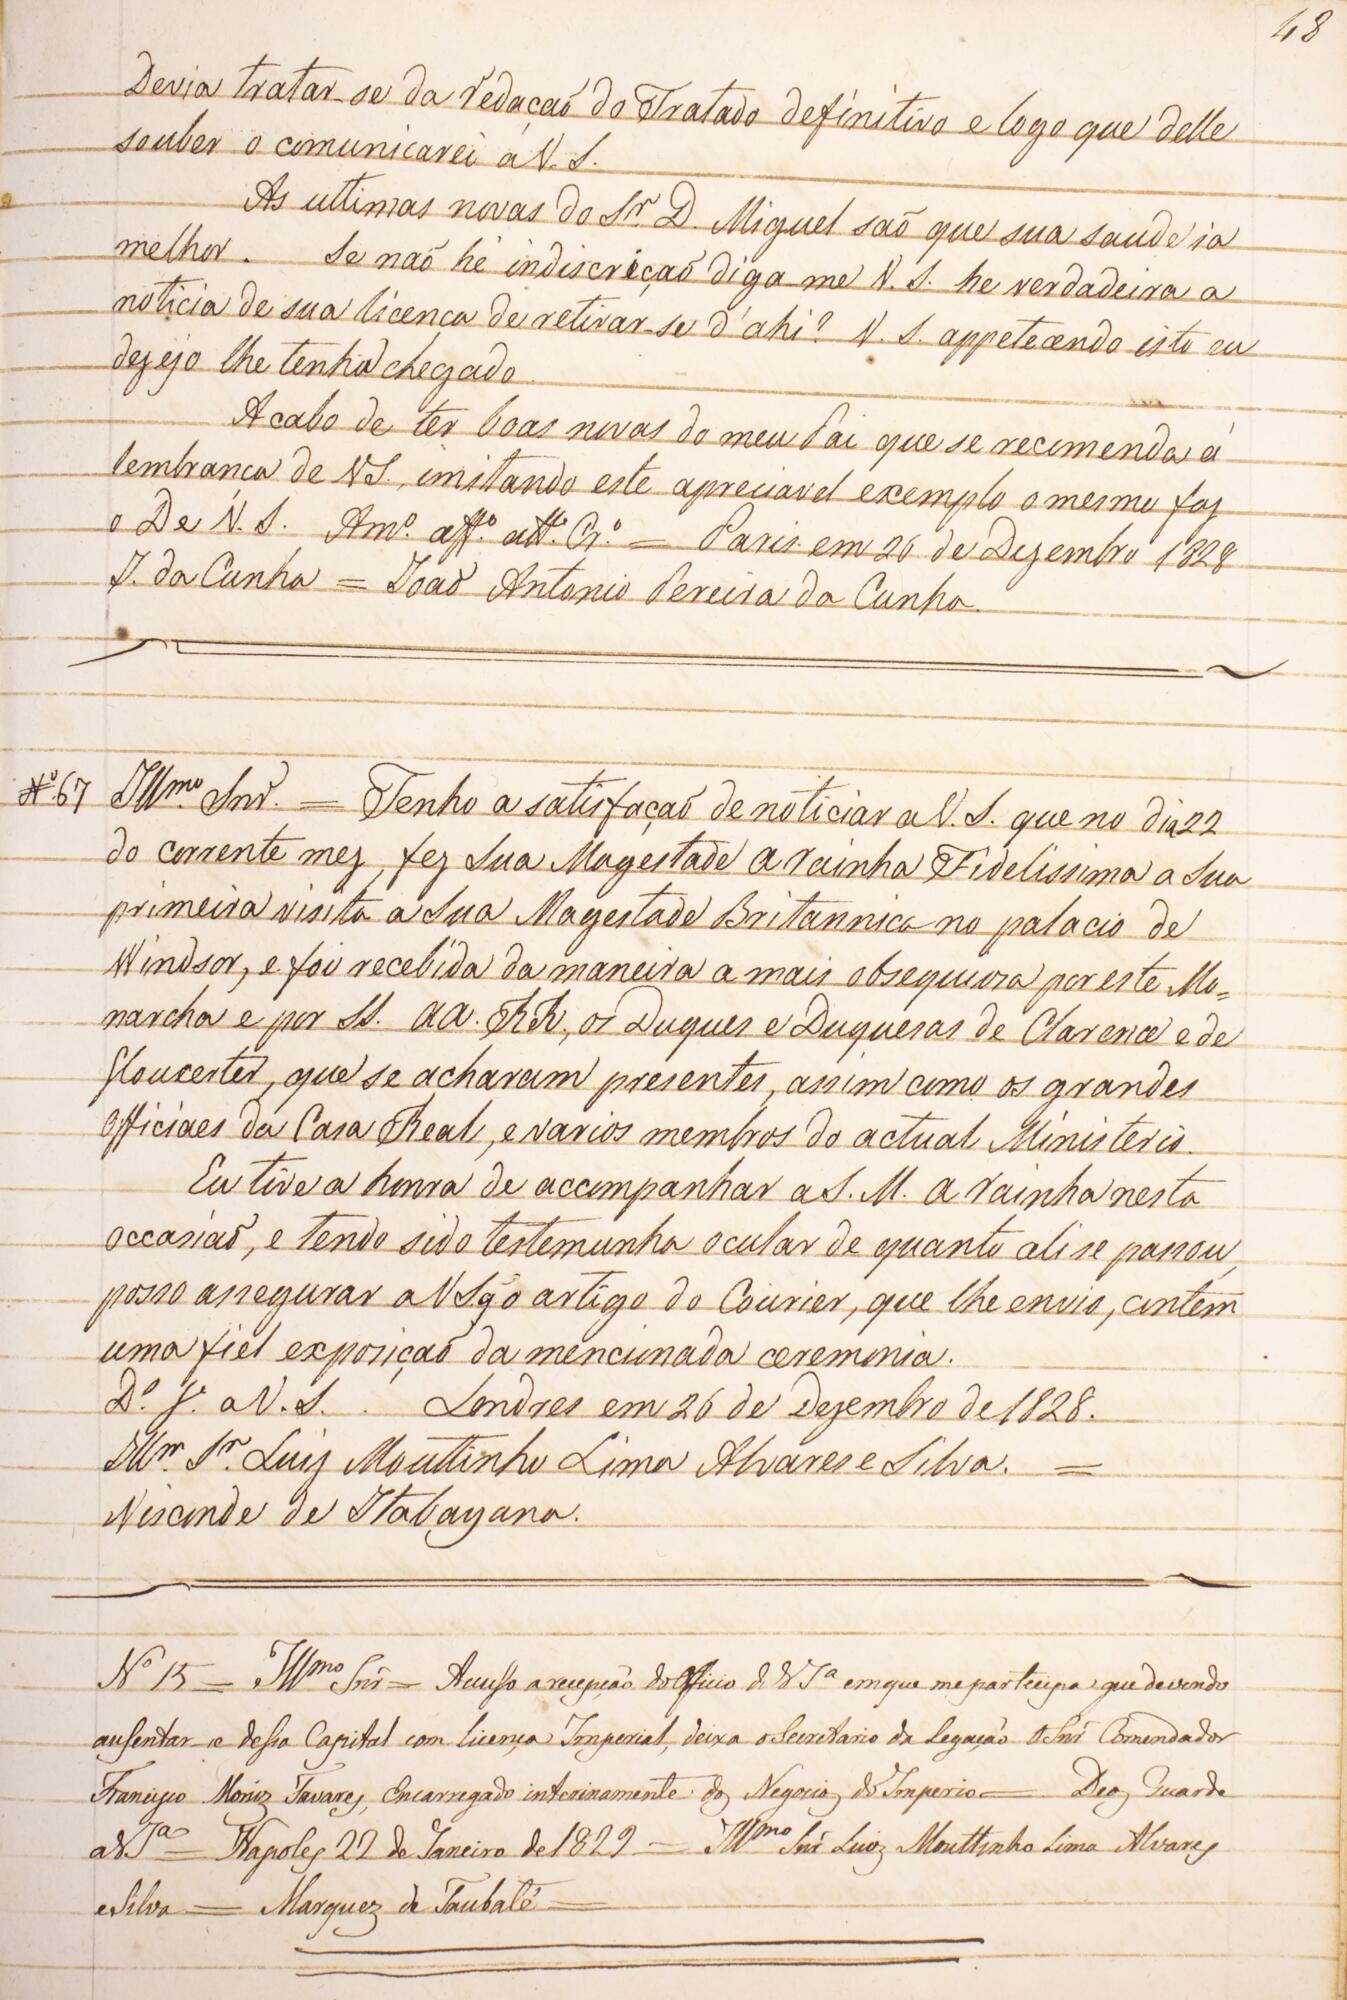 48
Devia tratar-se da redação do Tratado definitivo e logo que delle
souber o comunicarei á V. S.
As ultimas novas do Sr. D. Miguel saõ que sua saude ia
melhor. Se naõ hé indiscriçaõ diga-me V. S. he verdadeira a
noticia de sua licença de retirar-se d'ahi? V. S. appetecendo isto eu
dezejo lhe tenha chegado.
Acabo de ter boas novas do meu Pai que se recomenda á
lembranca de VS., imitando este apreciavel exemplo o mesmo faz
o De V. S. Amo. affo. atto. Cr.o = Paris em 26 de Dezembro 1828
J. da Cunha = Joaõ Antonio Pereira da Cunha.
No. 67 Illmo. Snr. = Tenho a satisfaçaõ de noticiar a V. S. que no dia 22
do corrente mez, fez Sua Magestade a rainha Fidelissima a sua
primeira visita a Sua Magestade Britannica no palacio de
Windsor, e foi recebida da maneira a mais obsequiosa por este Mo=
narcha e por SS. AA. RR., os Duques e Duquesas de Clarence e de
Gloucester, que se acharam presentes, assim como os grandes
officiaes da Casa Real, e varios membros do actual Ministerio.
Eu tive a honra de accompanhar a S. M. a rainha nesta
occasiaõ, e tendo sido testemunha ocular de quanto ali se passou,
posso assegurar a VS. q̃ o artigo do Courier, que lhe envio, contem
uma fiel exposiçaõ da mencionada ceremonia.
Ds. g.e a V. S. . Londres em 26 de Dezembro de 1828.
Illmr. Sr. Luiz Moutinho Lima Alvares e Silva. =
Visconde de Itabayana.
No 15 = Illmo Snr = Accuso a recepção do Officio de VSa em que me participa que devendo
ausentar-se dessa Capital com licença Imperial, deixa o Secretario da Legação o Snr Comendador
Francisco Moniz Tavares, Encarregado interinamente dos Negocios do Imperio = Deos Guarde
a VSa = Napoles 22 de Janeiro de 1829 = Illmo Snr Luiz Mouttinho Lima Alvares
e Silva = Marquez de Taubaté =